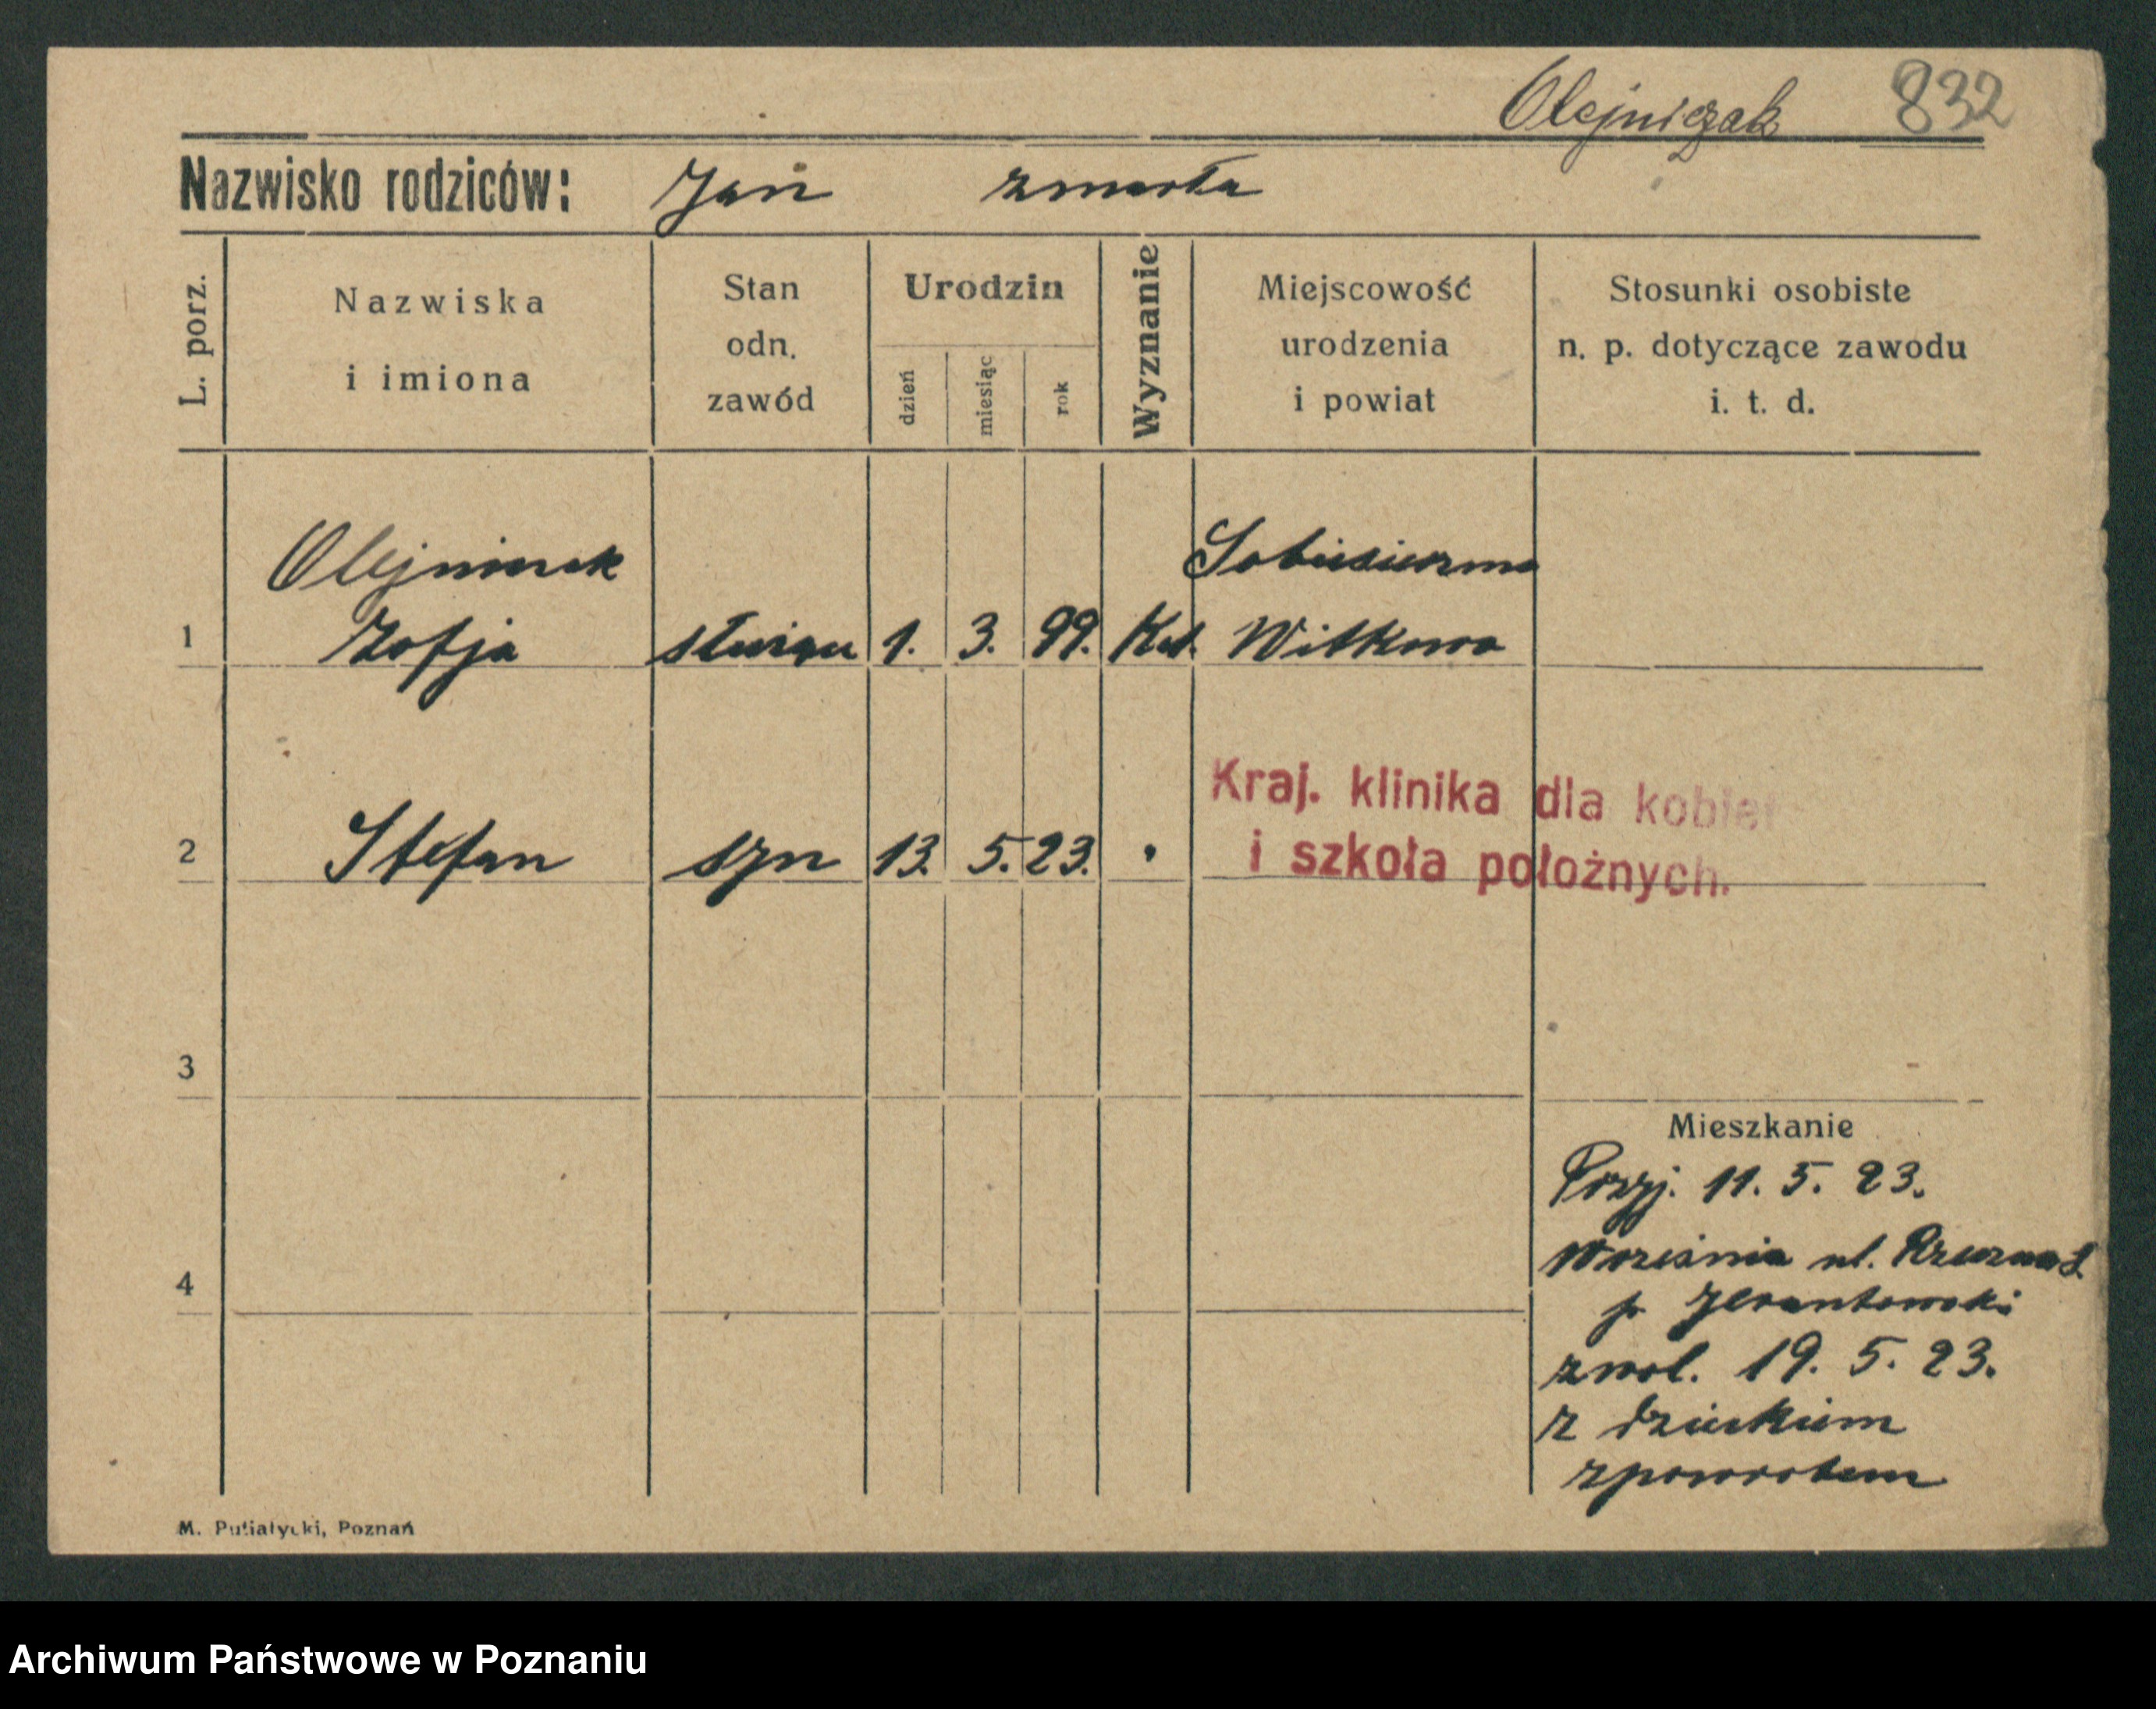 Olejniczak 832
Nazwisko rodziców: Jan zmarła
L. porz.
Nazwiska
i imiona
Stan
odn.
zawód
Urodzin
dzień
miesiąc
rok
Wyznanie
Miejscowość
urodzenia
i powiat
Stosunki osobiste
n. p. dotyczące zawodu
i. t. d.
Olejniczak Sobiesiernie
1 Zofja służąca 1. 3. 99. Kat. Witkowo
Kraj. klinika dla kobiet
i szkoła położnych.
2 Stefan syn 13. 5. 23.
3
Mieszkanie
Przyj. 11. 5. 23.
Września ul.
4
p
zwol. 19. 5. 23.
z dzieckiem
zpowrotem
M. Putiatycki, Poznań
Archiwum Państwowe w Poznaniu